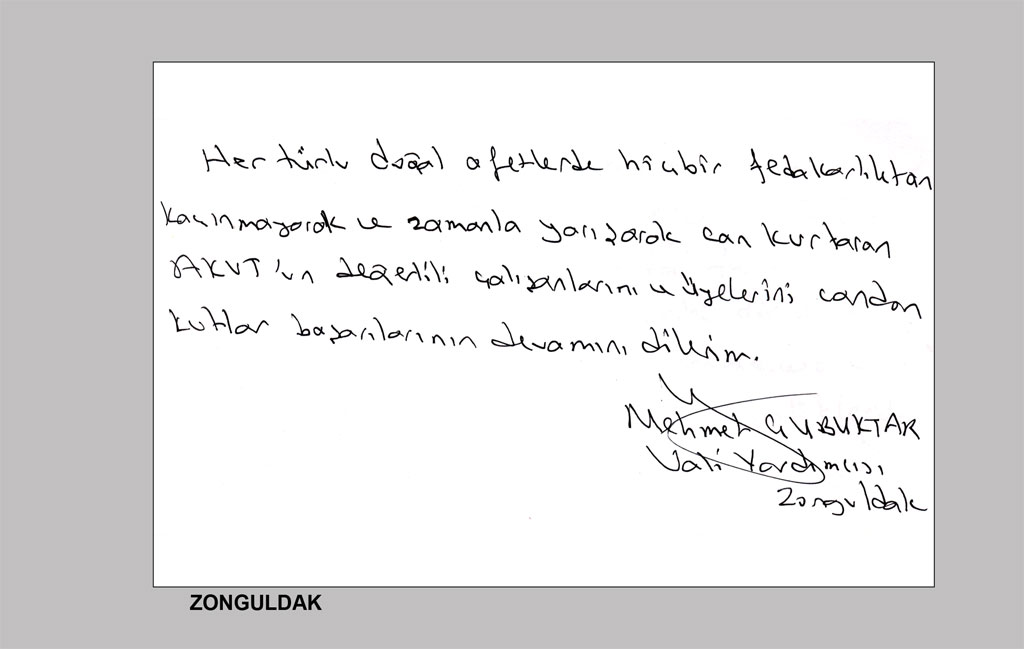 Her türlü doğal afetlerde hiçbir fedakarlıktan
kaçınmayarak ve zamanla yarışarak can kurtaran
AKUT'un değerlili çalışanlarını ve üyelerini candan
kutlar başarılarının devamını dilerim.
Mehmet ÇUBUKTAR
Vali Yardımcısı
Zonguldak
ZONGULDAK